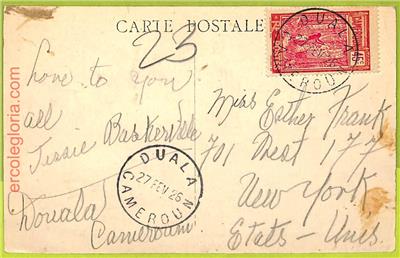 CARTE POSTALE
23
Love to you
all
Jessie Baskerville
Douala
Cameroun
Miss Esther Frank
701 West 177
New York
Etats-Unis.
DUALA
27 FEV 26
CAMEROUN
DUALA
ercolegloria.com